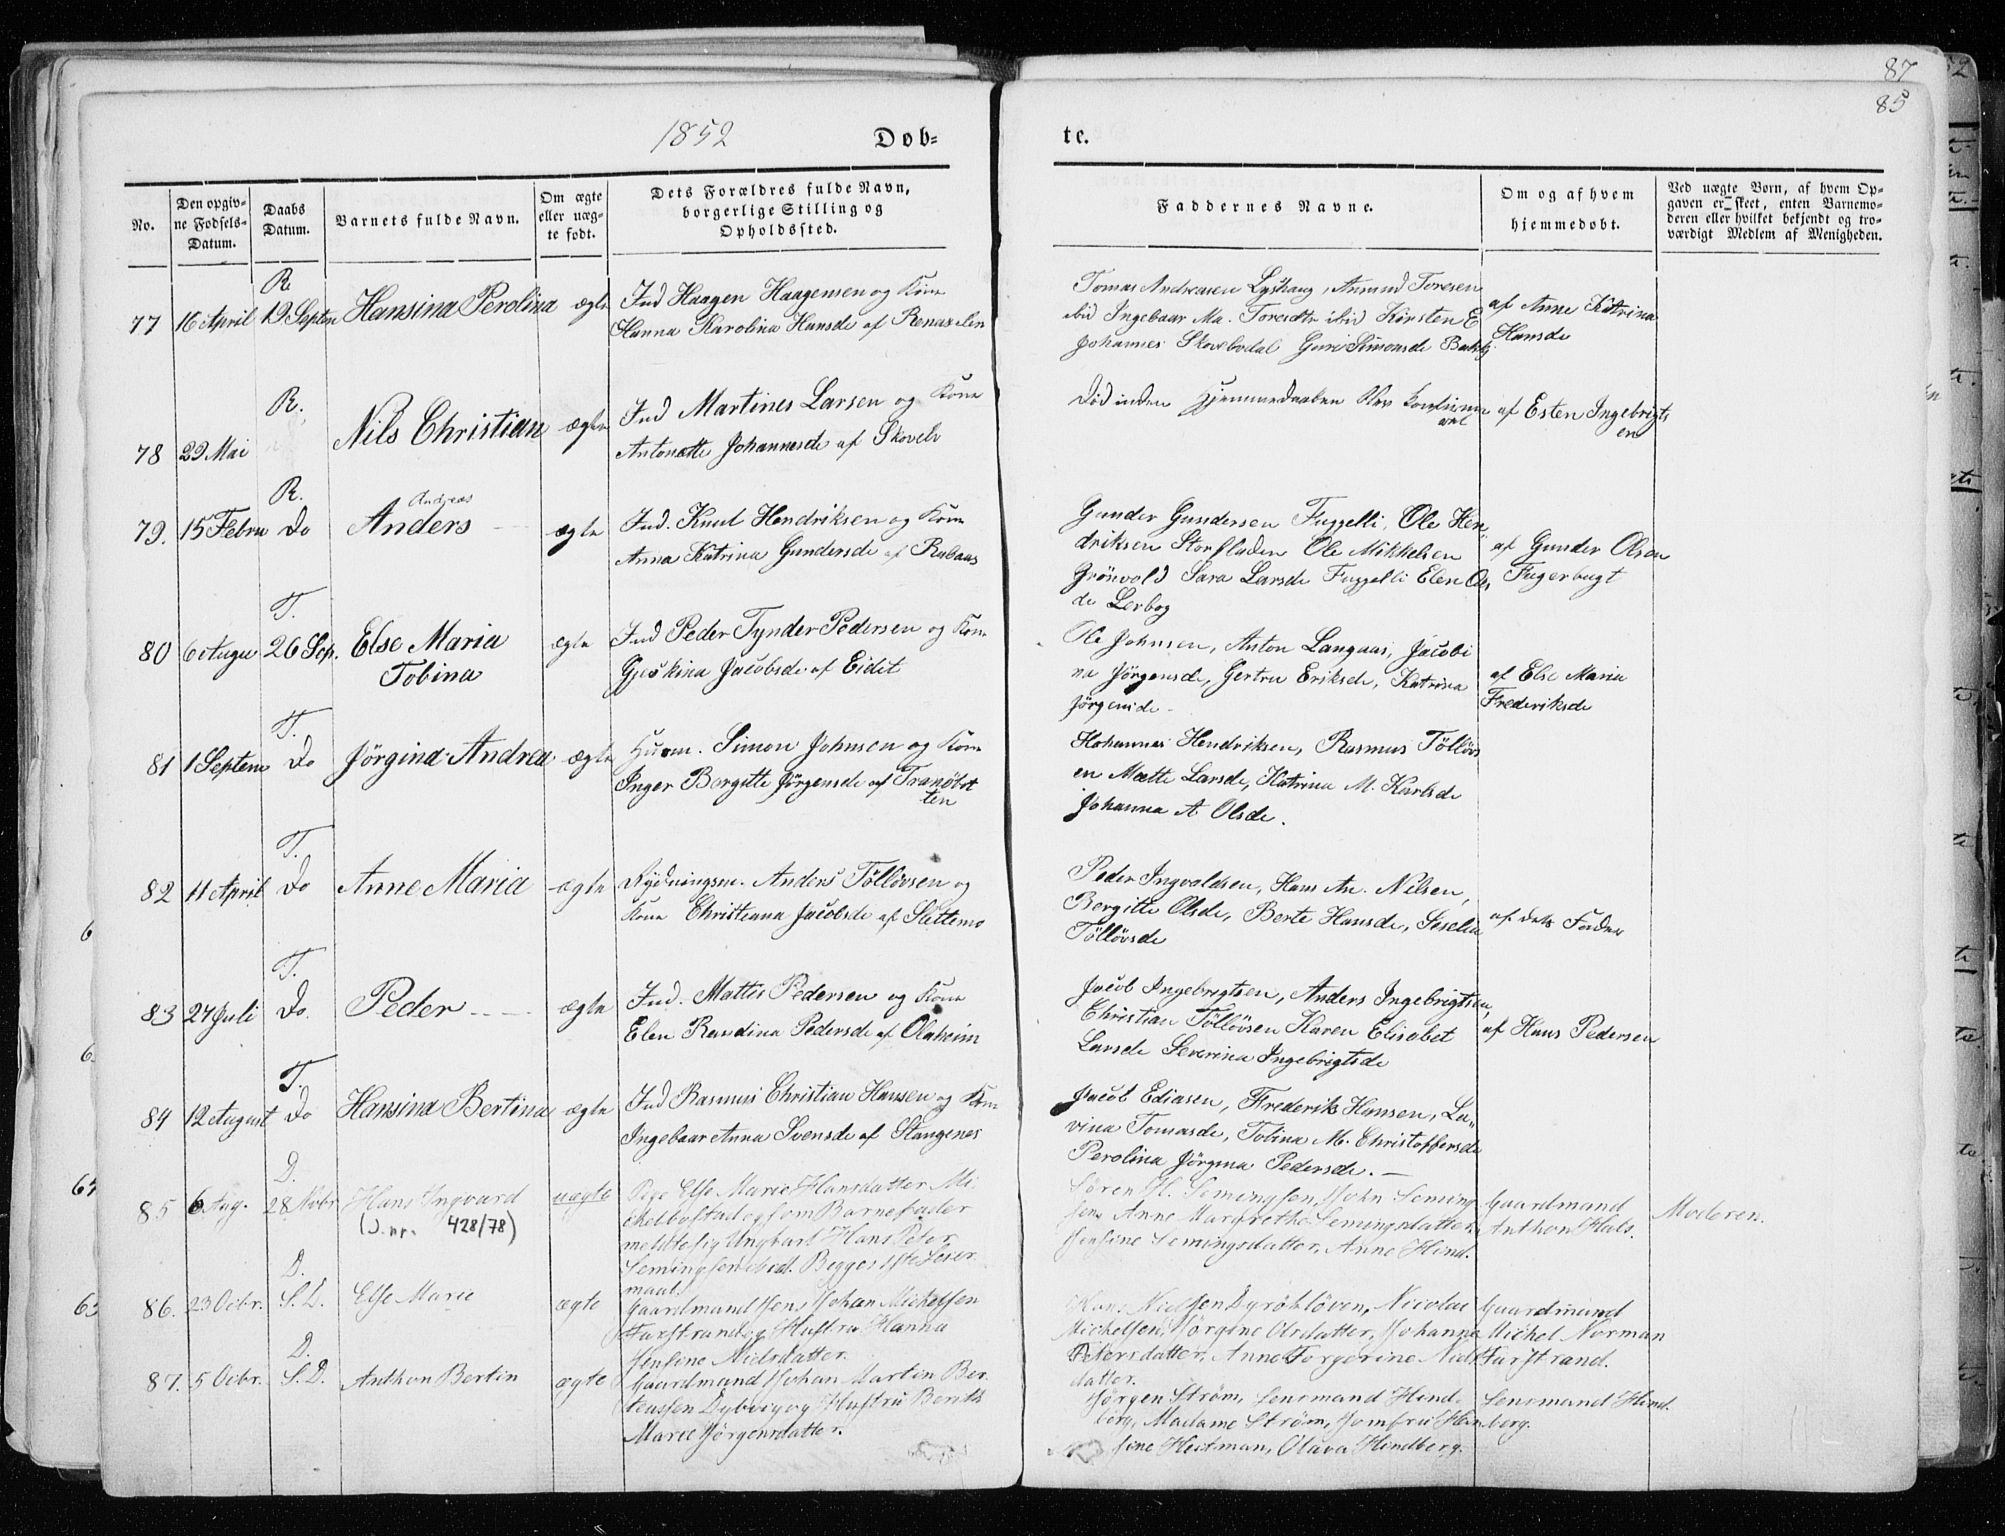 87
85
1852
Døb-
te.
No.
Den opgiv-
ne Fødsels-
Datum.
Daabs
Datum.
Barnets fulde Navn.
Om ægte
eller uæg-
te født.
Dets Forældres fulde Navn,
borgerlige Stilling og
Opholdssted.
Faddernes Navne.
Om og af hvem
hjemmedøbt.
Ved uægte Børn, af hvem Op-
gaven er skeet, enten Barnemo-
deren eller hvilket bekjendt og tro-
værdigt Medlem af Menigheden.
R
77 16 April 19 Septem Hansina Perolina ægte
Ind Haagen Haagensen og Kone
Hanna Karolina Hansde af Renaselen
Tomas Andreasen Lyshaug, Amund Toresen
ibid Ingebaar Ma. Toresdtr ibid Kirsten E
Johannes Skovebodal Guri Simonsde
af Anne Katrina
Hansde
R.
78 29 Mai Nils Christian ægte
Ind Martines Larsen og Kone
Antonette Johannesde af Skovelv
Død inden Hjemmedaaben blev
af Esten Ingebrigts
en
R.
79. 15 Febru Do Anders ægte
Andreas
Ind. Knut Hendriksen og Kone
Anna Katrina Gundersde af Rabaas
Gunder Gundersen Fuggelli, Ole Hen,
driksen Storfladen Ole Mikkelsen
Grönvold Sara Larsde Fuggelli Elen Ols
de Lerbog
af Gunder Olsen
Fugerbugt
T.
80 6 Augu 26 Sep. Else Maria
Tobina
ægte
Ind Peder Tynder Pedersen og Kone
Gjeskina Jacobsde af Eidet
Ole Johnsen, Anton Langaas, Jacobi
na Jörgensde, Gertru Eriksde, Katrina
Jörgensde
af Else Maria
Frederiksde
T.
81 1 Septem Do Jörgina Andrea ægte
Husm. Simon Johnsen og Kone
Inger Bergitte Jörgensde af Tranöbot
ten
Hohannes Hendriksen, Rasmus Töllövs
en Mætte Larsde, Katrina M. Karlsde
Johanna A Olsde.
T.
82 11 April Do Anne Maria ægte
Rydningsm. Anders Töllövsen og
Kone Christiana Jacobsde af Slettemo
Peder Ingvaldsen, Hans An. Nilsen,
Bergitte Olsde, Berte Hansde, Seselia
Töllövsde
af dets Fader
T.
83 27 Juli Do. Peder ægte
Ind. Mattis Pedersen og Kone
Elen Randina Pedersde af Olaheim
Jacob Ingebrigtsen, Anders Ingebrigtsen,
Christian Töllövsen Karen Elisabet
Larsde Severina Ingebrigtsde
af Hans Pedersen
T.
84 12 August Do Hansina Bertina ægte
Ind Rasmus Christian Hansen og Kone
Ingebaar Anna Svensde af Stangenes
Jacob Ediasen, Frederik Hansen, La,,
vina Tomasde, Tobina M. Christoffersde
Perolina Jörgina Pedersde.
D.
85 6 Aug. 28 Novbr Hans Ingvard
(J.nr. 428/78)
uægte
Pige Else Marie Hansdatter Mi
chelbostad og som Barnefader
meldte sig Ungkarl Hans Peter
Semingsen ibid. Begges 1ste Leier
maal.
Sören H. Semingsen, John Seming
sen, Anne Margrethe Semingsdatter,
Jensine Semingsdatter, Anne Hind.
Gaardmand
Anthon Hals.
Moderen.
D.
86. 23 Octbr. S.D. Else Marie ægte
Gaardmand Jens Johan Michelsen
Farstrand og Hustru Hanna
Jensine Nielsdatter.
Hans Nielsen Dyröhlöven, Nicolai
Michelsen, Jörgine Olsdatter, Johanne
Petersdatter, Anne Torgerine Niels
datter.
Gaardmand
Michel Norman
Farstrand.
D.
87. 5 Octbr. S.D. Anthon Bertin ægte
Gaardmand Johan Martin Ber
teussen Dyböig og Hustru Berith
Marie Jörgensdatter.
Jörgen Ström, Lensmand Hind
berg, Madame Ström, Jomfru Han
sine Heitman, Olava Hindberg.
Lensmand Hind.
berg.